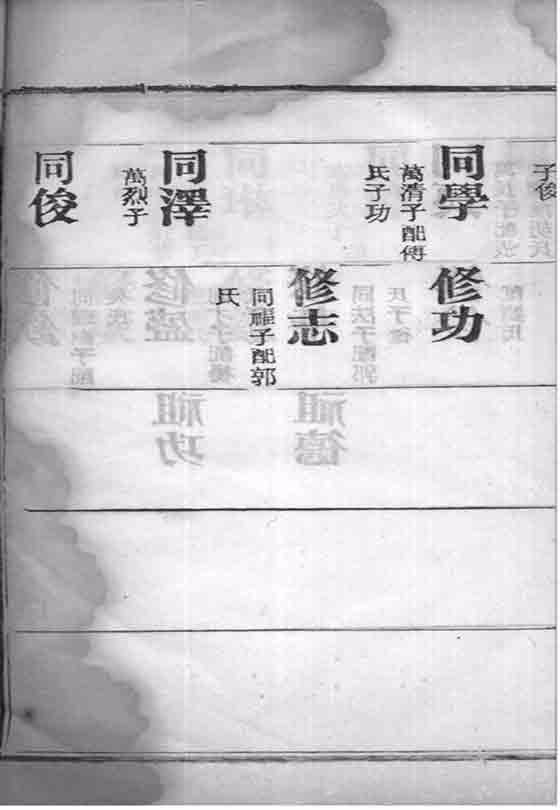 子俊
同學
萬清子配傅
氏子功
同澤
萬烈子
同俊
修功
修志
同耀子配郭
氏